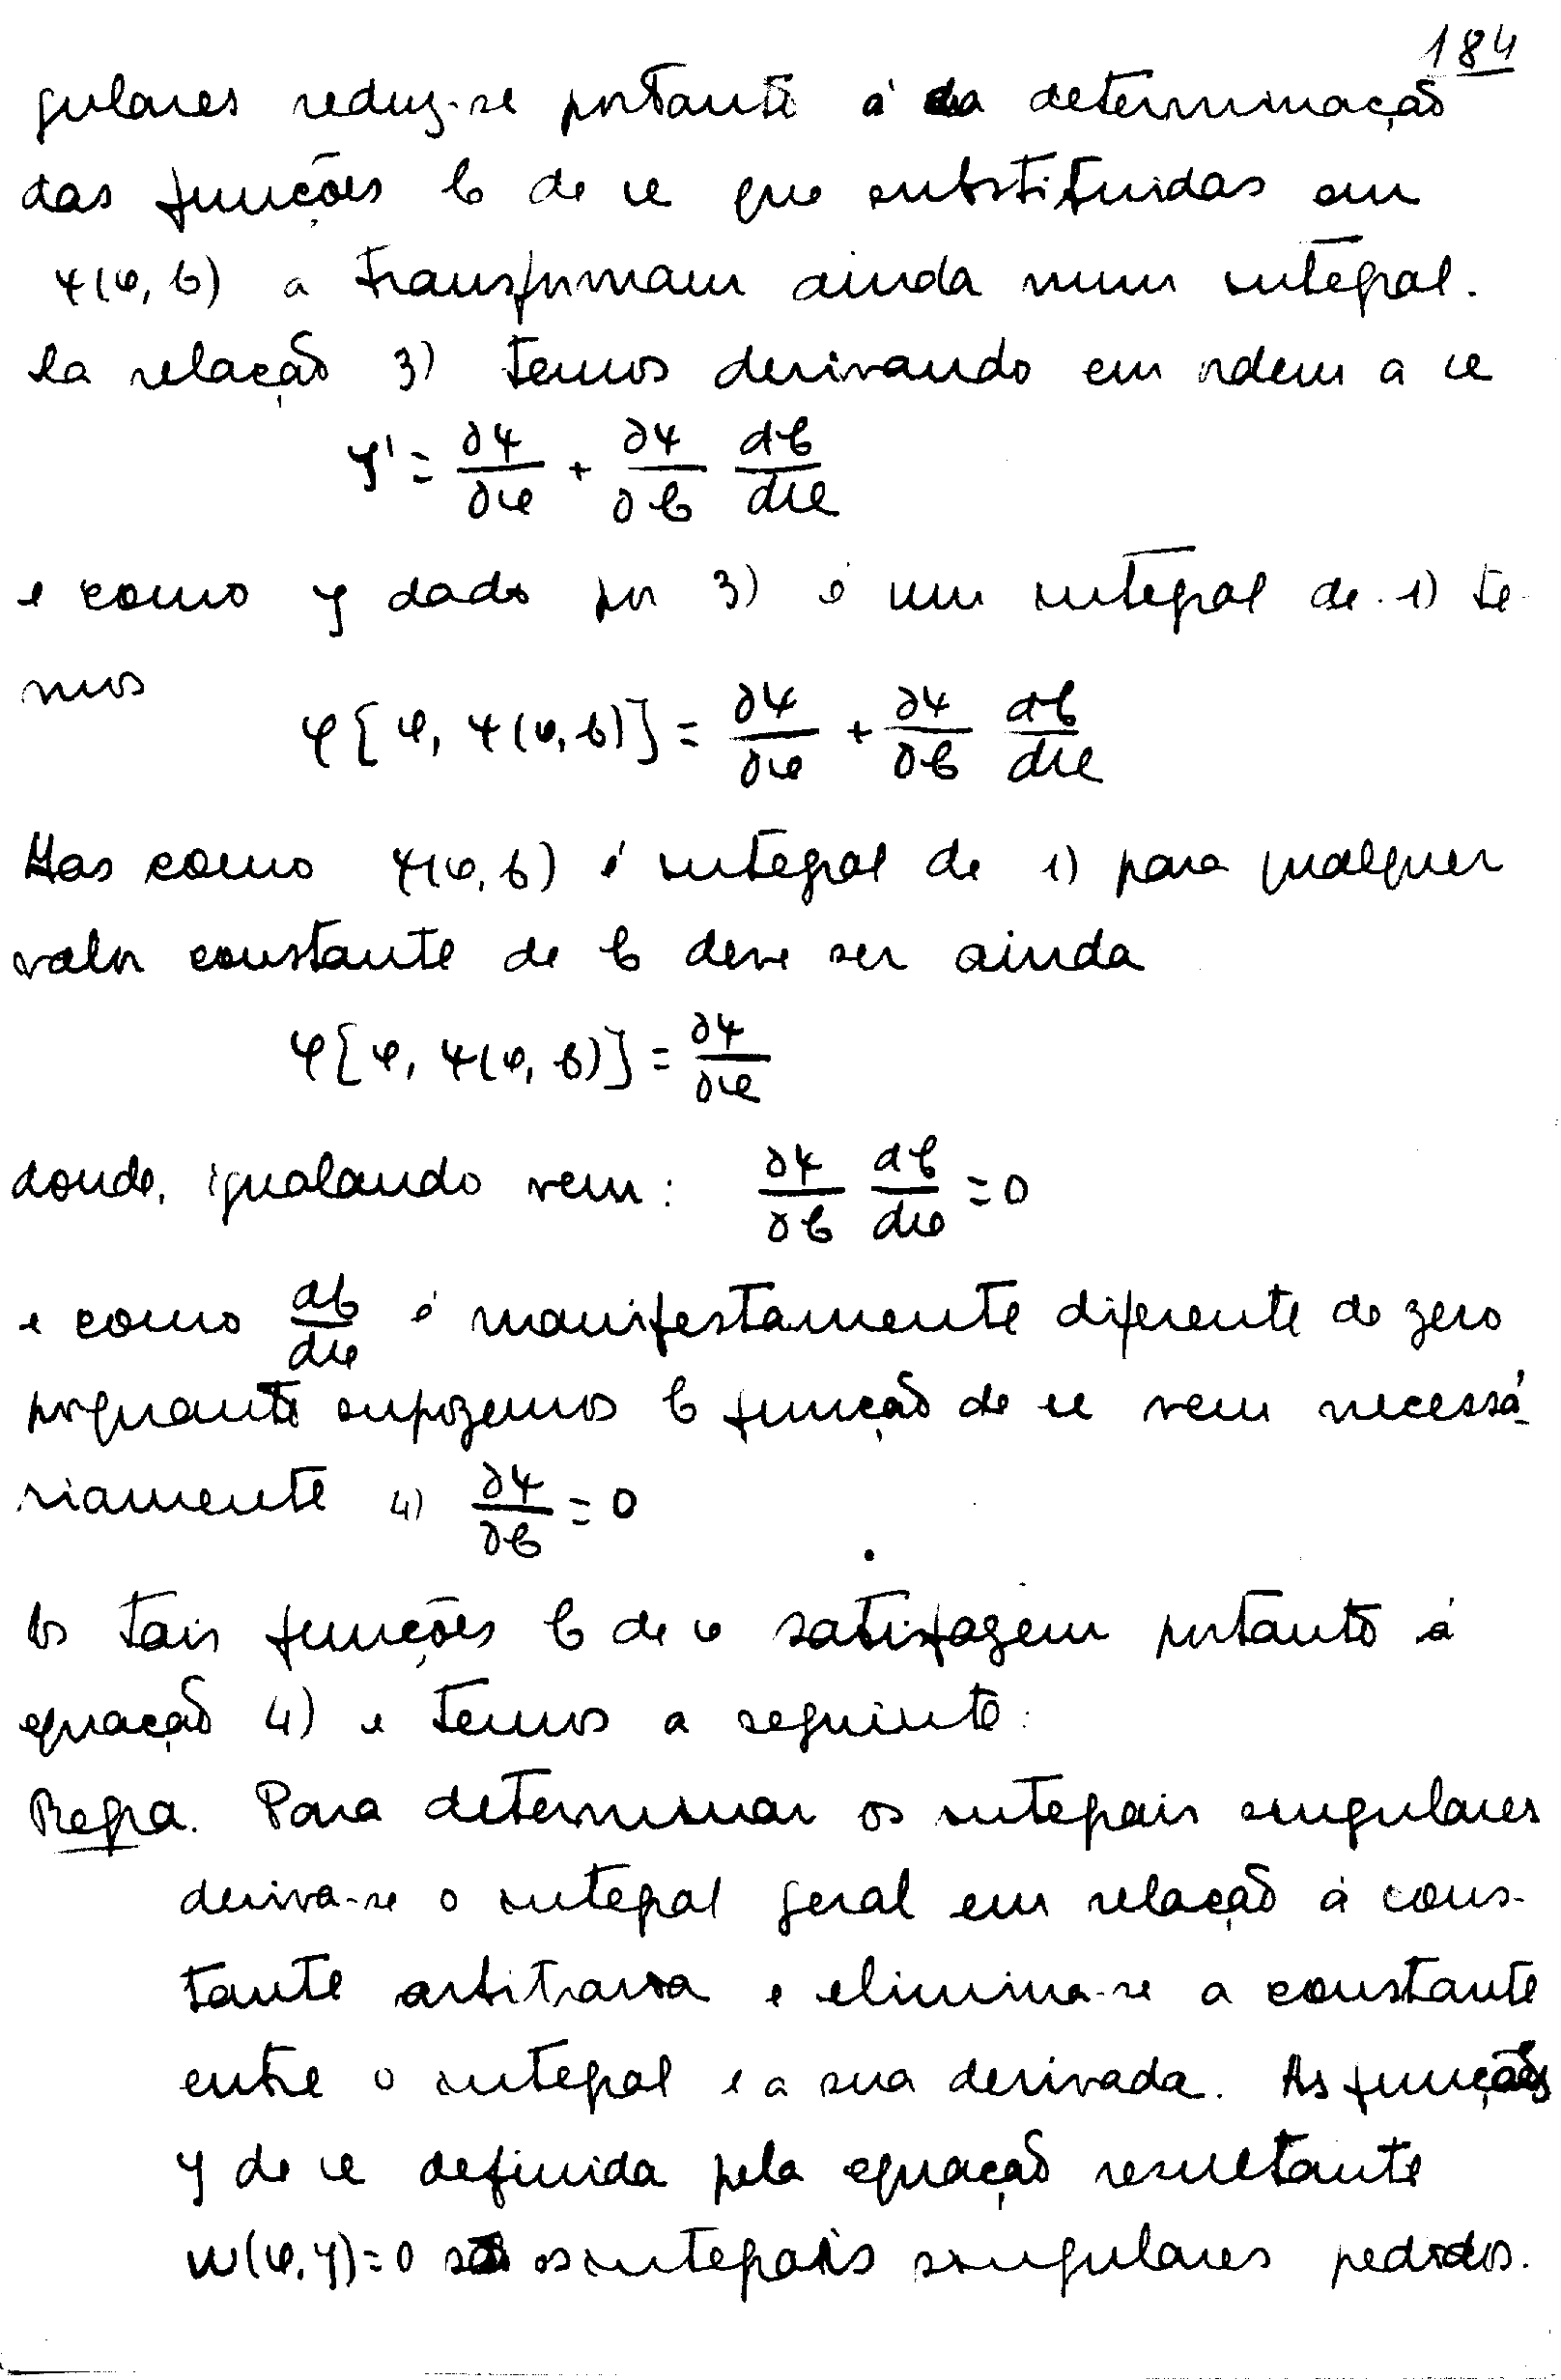 184
gulares reduz-se portanto á da determinação
das funções b de x que substituidas em
ψ(x, b) a transformam ainda num integral.
Da relação 3) temos derivando em ordem a x
y' = ∂ψ/∂x + ∂ψ/∂b db/dx
e como y dado por 3) é um integral de 1) te-
mos
φ[x, ψ(x, b)] = ∂ψ/∂x + ∂ψ/∂b db/dx
Mas como ψ(x, b) é integral de 1) para qualquer
valor constante de b deve ser ainda
φ[x, ψ(x, b)] = ∂ψ/∂x
donde, igualando vem: ∂ψ/∂b db/dx = 0
e como db/dx é manifestamente diferente de zero
porquanto supozemos b função de x vem necessá-
riamente 4) ∂ψ/∂b = 0
As tais funções b de x satisfazem portanto á
equação 4) e temos a seguinte:
Regra. Para determinar os integrais singulares
deriva-se o integral geral em relação á cons-
tante arbitraria e elimina-se a constante
entre o integral e a sua derivada. As funções
y de x definida pela equação resultante
w(x, y) = 0 são os integrais singulares pedidos.